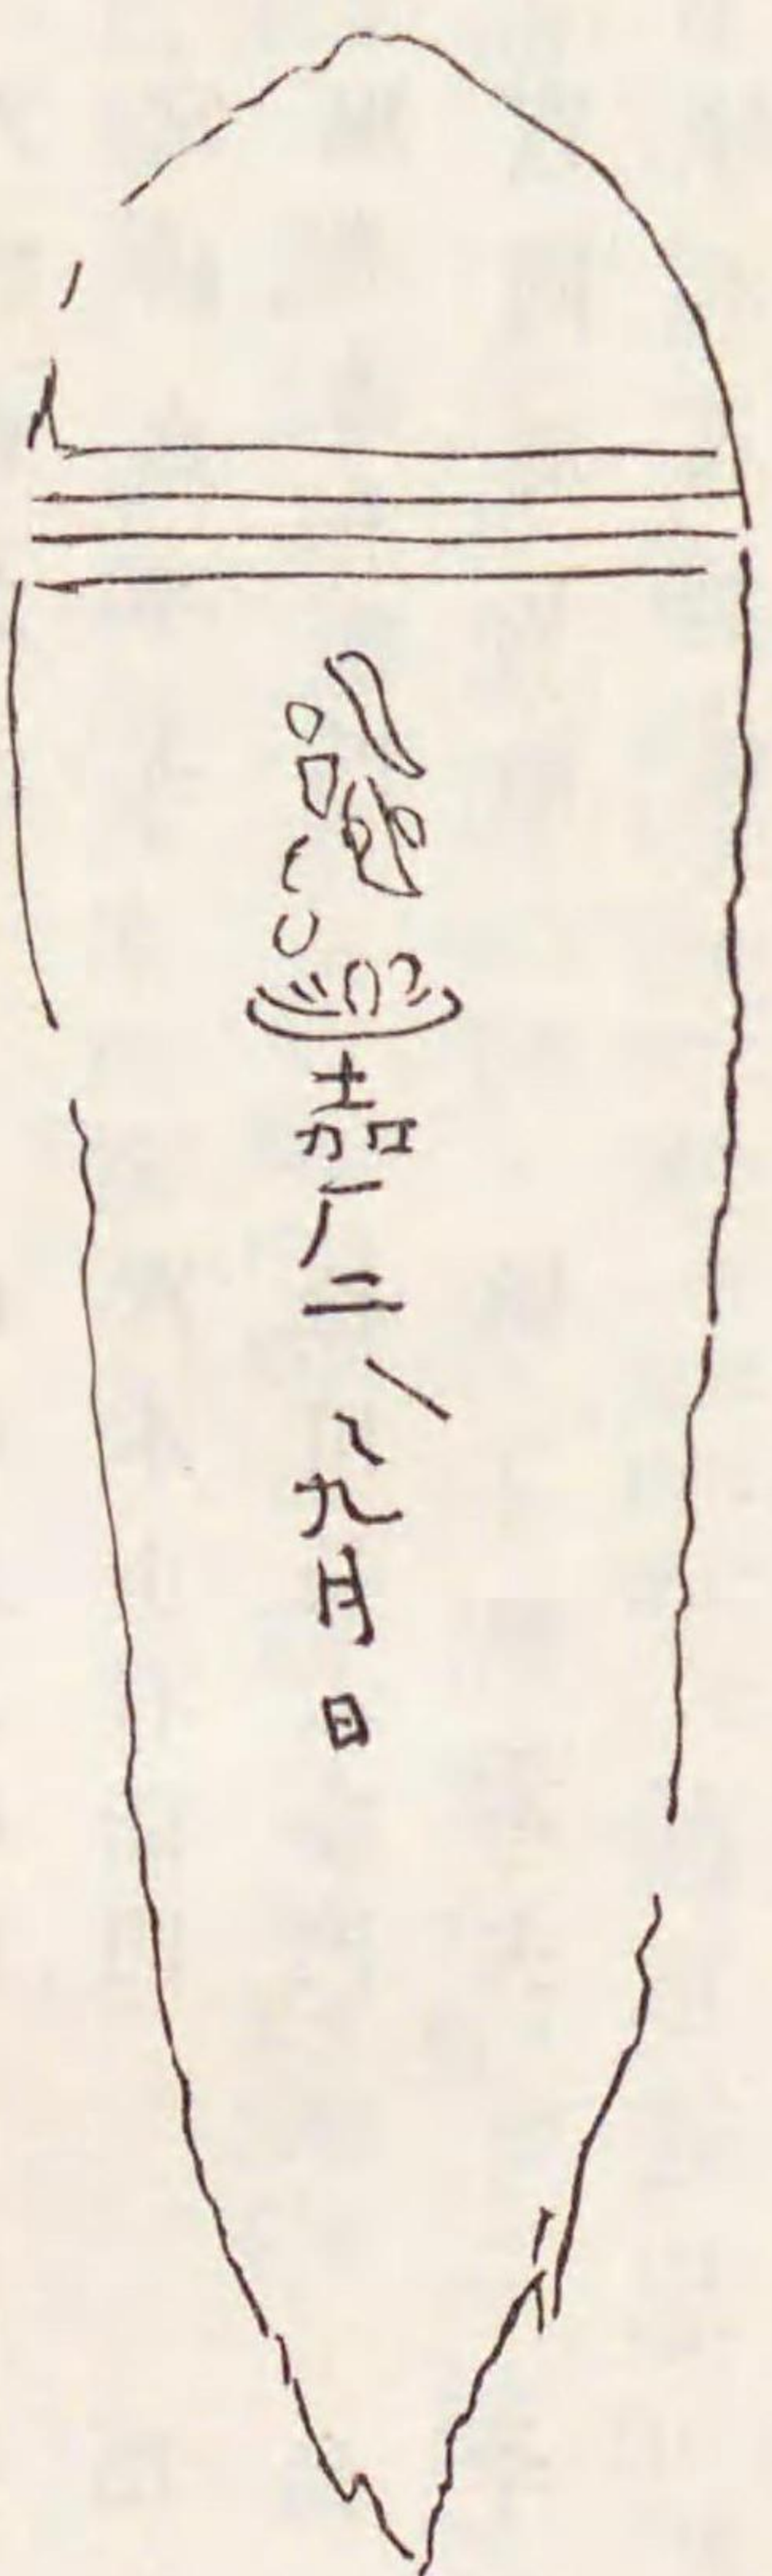 嘉厂二 九月日